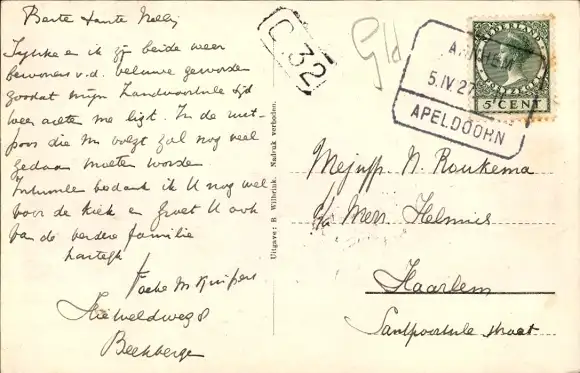 Beste tante Nelly
en ik zijn beide weer
bewoners v.d. veluwe geworden
zoodat mijn Zandvoortsche tijd
weer achter me ligt. In de
die nu volgt zal nog veel
gedaan moeten worden
Intusschen bedank ik U nog wel
voor de kiek en groet U ook
van de verdere familie
hartelijk
M Kuipers
8
Beekbergen
Uitgave: B. Wilbrink. Nadruk verboden.
C.32
NEDERLAND
5 CENT
ARNHEM
5.IV.27
APELDOORN
Mejuffr. N. Roukema
c/o Mevr. Helmus
Haarlem
Santpoortsche straat